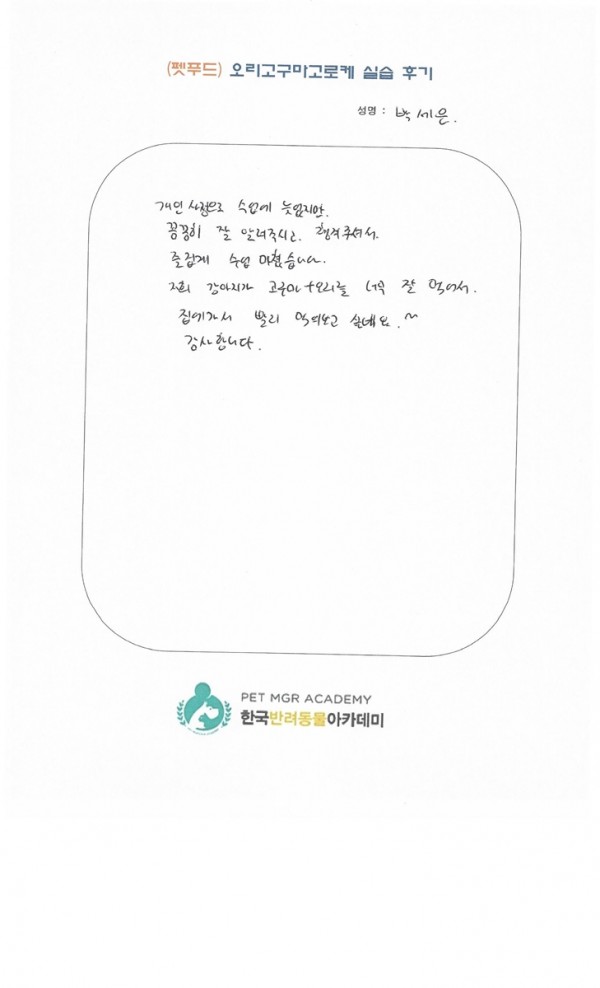 (펫푸드) 오리고구마고로케 실습 후기
성명 : 박세은.
개인 사정으로 수업에 늦었지만,
꼼꼼히 잘 알려주시고, 챙겨주셔서
즐겁게 수업 마쳤습니다.
저희 강아지가 고구마+오리를 너무 잘 먹어서.
집에가서 빨리 먹여보고 싶네요.~
감사합니다.
PET MGR ACADEMY
한국반려동물아카데미